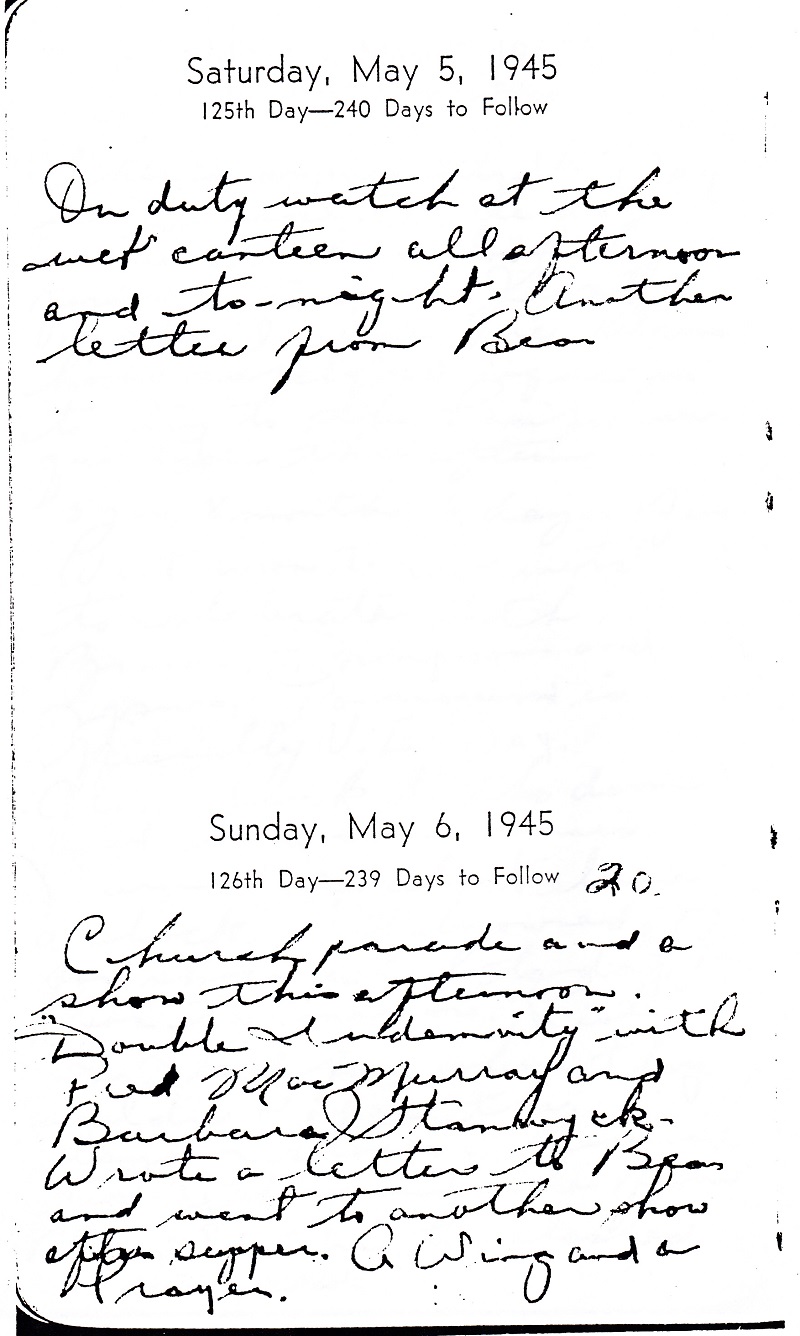 Saturday, May 5, 1945
125th Day—240 Days to Follow
On duty watch at the
"wet" canteen all afternoon
and to-night. Another
letter from Bea
Sunday, May 6, 1945
126th Day—239 Days to Follow 20.
Church parade and a
show this afternoon.
"Double Indemnity" with
Fred MacMurray and
Barbara Stanwyck.
Wrote a letter to Bea
and went to another show
after supper. A Wing and a
Prayer.